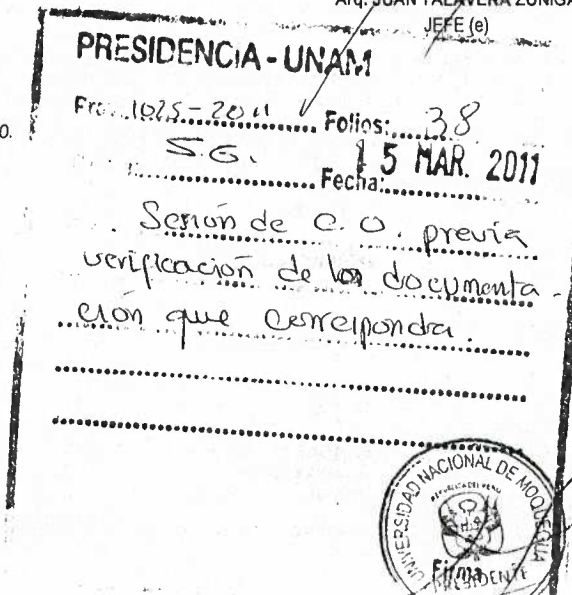 Arq. JUAN TALAVERA ZUÑIGA
JEFE (e)
PRESIDENCIA - UNAM
1025-2011 Folios: 38
S.G. Fecha: 15 MAR. 2011
Sesión de C.O. previa
verificación de la documenta-
ción que corresponda.
UNIVERSIDAD NACIONAL DE MOQUEGUA
REPUBLICA DEL PERU
Firma
PRESIDENTE